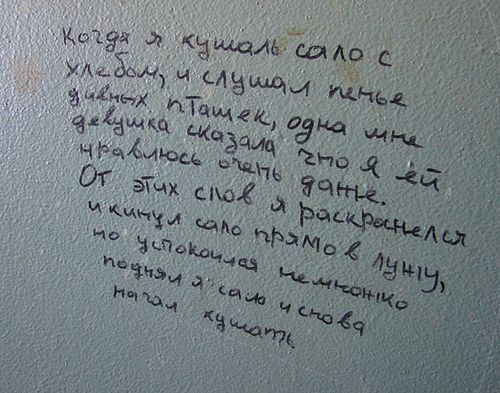 Когда я кушаль сало с
хлебом, и слушал пенье
дивных пташек, одна мне
девушка сказала что я ей
нравлюсь очень даже.
От этих слов я раскранелся
и кинул сало прямо в лужу,
но успокоился немножко
поднял я сало и снова
начал кушать.